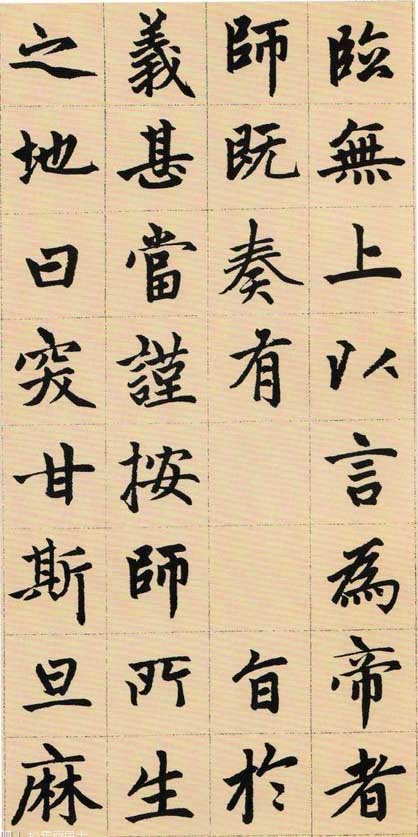 臨無上以言為帝者
師既奏有旨於
義甚當謹按師所生
之地曰突甘斯旦麻